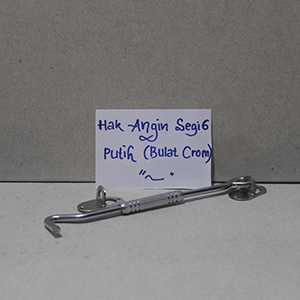 Hak Angin Segi6
Putih (Bulat Crom)
"~ "